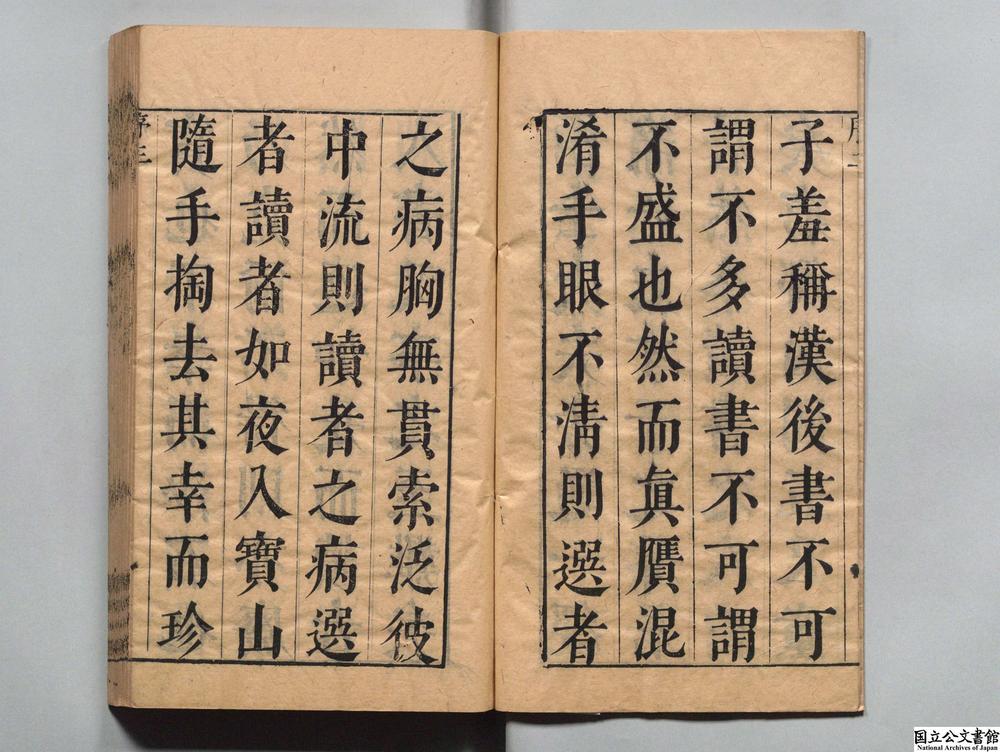 子羞稱漢後書不可
謂不多讀書不可謂
不盛也然而眞贋混
淆手眼不淸則選者
之病胸無貫索泛彼
中流則讀者之病選
者讀者如夜入寶山
隨手掏去其幸而珍
序三
国立公文書館
National Archives of Japan